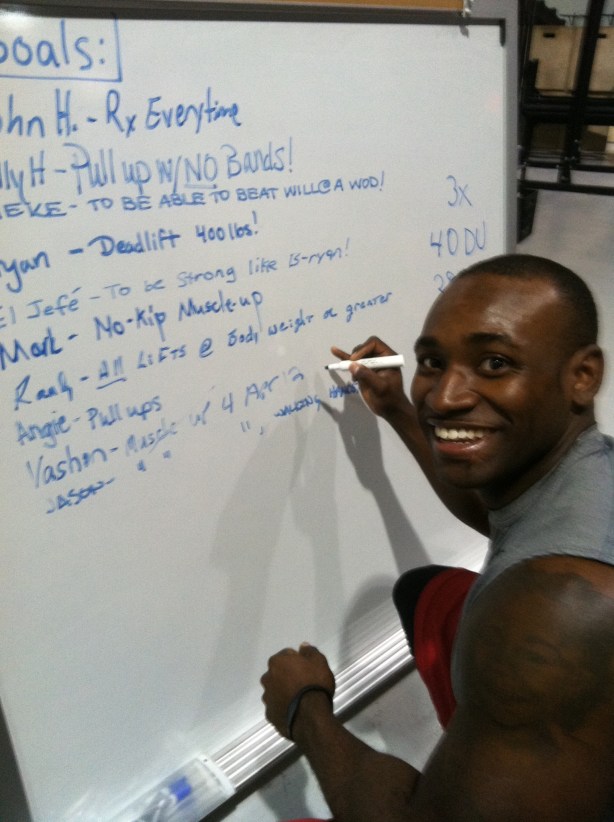 oals:
ohn H. - Rx Everytime
lly H - Pull up w/ NO Bands!
EKE - TO BE ABLE TO BEAT WILL @ A WOD!
3X
yan - Deadlift 400 lbs!
40 DU
El Jefé - To be strong like Is-ryan!
Mark - No-Kip Muscle-up
Randy - All LiFTS @ Body weight or greater
Angie - Pull ups
Vashon - Muscle up 4 Apr 12
JASON - " " " , WALKING HAND